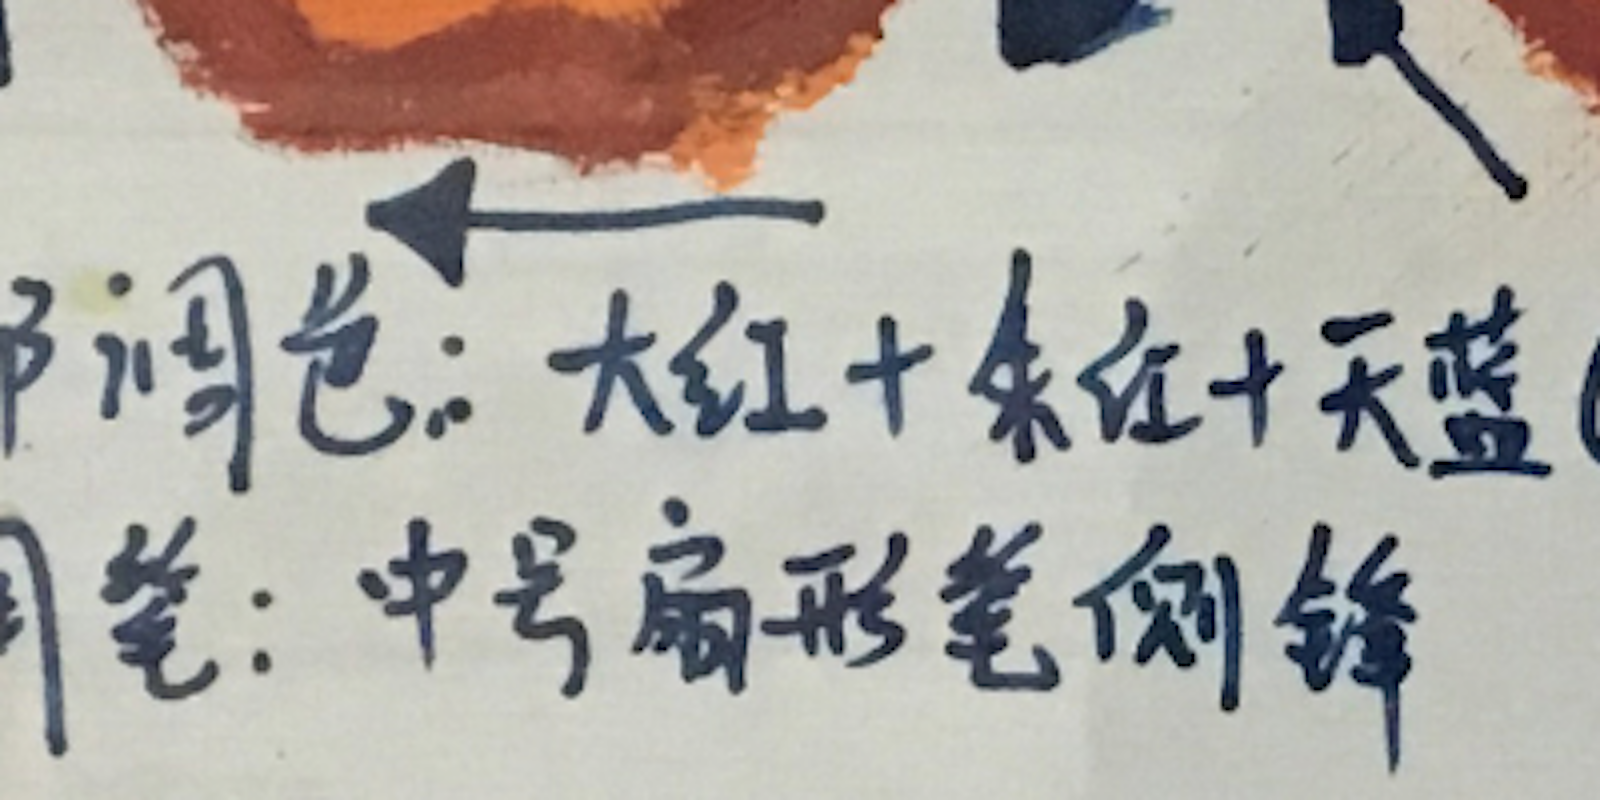 部调色：大红＋朱红＋天蓝（
用笔：中号扇形笔侧锋